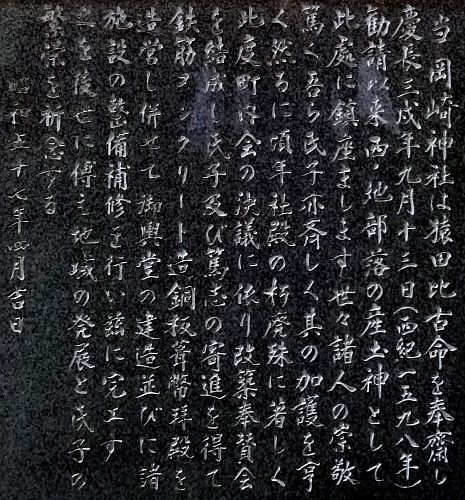 当岡崎神社は猿田比古命を奉斎し
慶長三戌年九月十三日(西紀一五九八年)
勧請以来西ノ地部落の産土神として
此處に鎮り座まします世々諸人の崇敬
篤く吾ら氏子亦斉しく其の加護を享
く然るに頃年社殿の朽廃殊に著しく
此度町内会の決議に依り改築奉賛会
を結成し氏子及び篤志の寄進を得て
鉄筋コンクリート造銅板葺幣拝殿を
造営し併せて御輿堂の建造並びに諸
施設の整備補修を行い茲に完工す
之を後世に傳え地域の発展と氏子の
繁栄を祈念する
昭和五十七年四月吉日